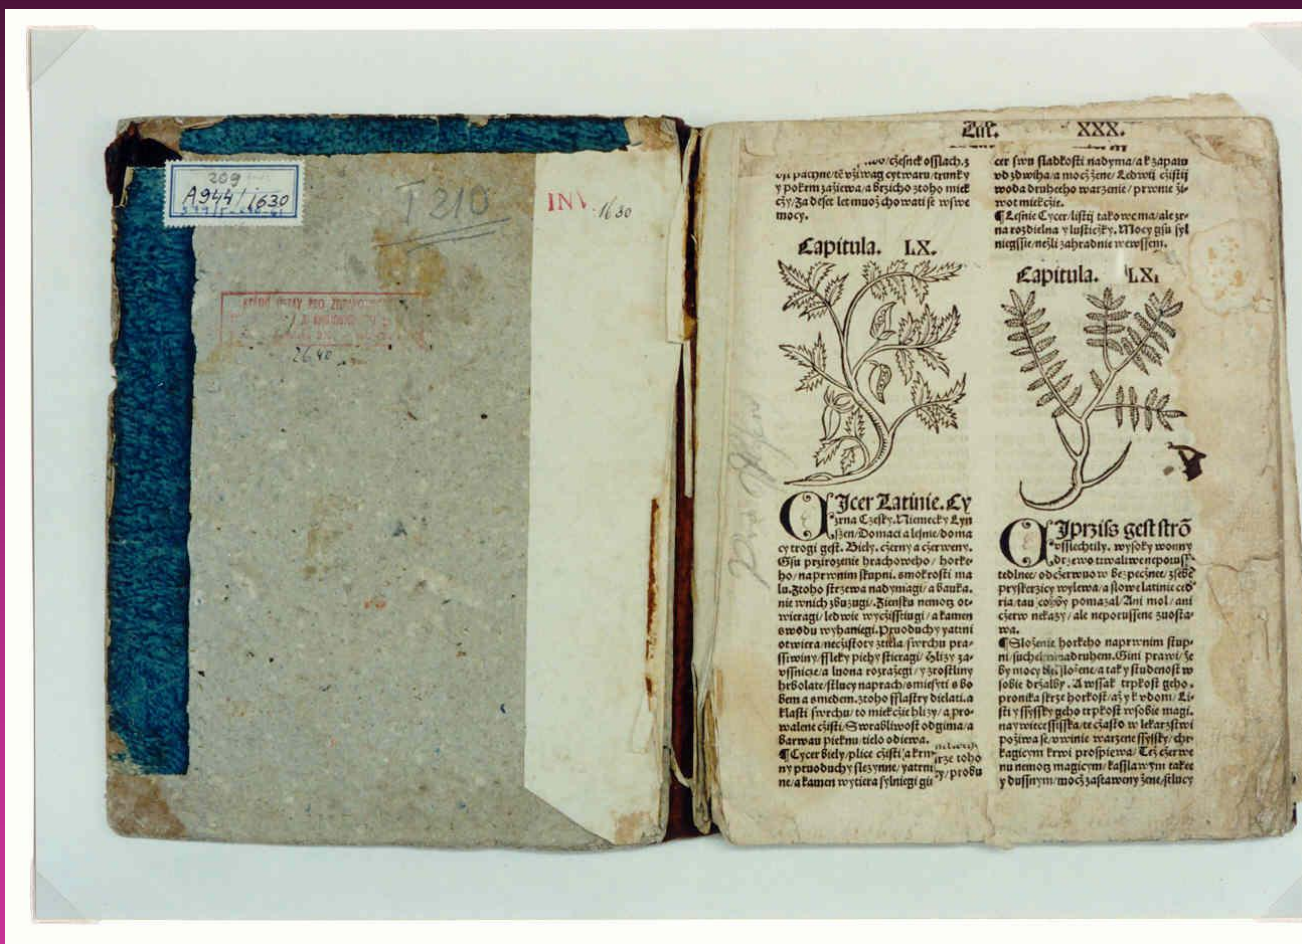 209
A944/1630
T 210
INV. 1630
2640
List. XXX.
czesnek osslach. z
y pokrm zażiewa/a brzicho ztoho miek
czy/Za deset let muoż chowati se wswe
mocy.
Capitula. LX.
CIcer Latinie. Cy
zrna Czesky. Niemecky Zyn
szen/Domaci a lesnie/doma
cy trogi gest. Biely. czerny a czerweny.
Gsu przirozenie hrachoweho/ horke-
ho/naprwnim skupni. smokrosti ma
lu. Ztoho strzewa nadymagi/a bauka.
nie wnich zbuzugi. Zensku nemoc ot-
wieragi/ledwie wyczisstiugi/a kamen
s wodu wyhaniegi. Pruoduchy yatrni
otwiera/neczistoty ztiela swrchu pra-
ssiwiny/ssleky piehy stieragi/ hlizy za-
ussnicie/a luona rozrażegi/y zrostliny
hrbolate/stlucy naprach/smiesyti s bo
bem a smedem. ztoho sslastry dielati. a
klasti swrchu/to miekczie hlizy/a pro-
walene czisti/Swrabliwost odgima/a
barwau pieknu/tielo odiewa.
¶Cycer biely/plice czisti
ny pruoduchy slezynne/yatrni
ne/a kamen wytiera sylniegi
irze toho
cy/probu
cer swu sladkosti nadyma/a k zapalu
vzdwiha/a mocz żene/Ledwij czistij
woda druheeho warzenie/prwnie żi-
wot miekczie.
¶Lesnie Cycer/listij takowe ma/ale zr-
na rozdielna y lustieżky. Mocy gsu syl
niegssie/neżli zahradnie wewssem.
Capitula. LXI
CIprziss gest strō
vssiechtily. wysoky wonny
drzewo trwaliwe neporuss-
tedlne/odczerwuow bezpecznee/zsebe
pryskerzicy wylewa/a slowe latinie ced
ria/tau cożby pomazal/Ani mol/ani
czerw nekazy/ale neporussene zuosta-
wa.
¶Slożenie horkeho naprwnim stup-
ni/sucheho nadruhem. Gini prawi/że
by mocy byl slożene/a taky studenost w
sobie drżalby. A wssak trpkost geho.
pronika skrze horkost/aż y k vdom/Li-
sti y ssyssky geho trpkost wsobie magi.
naywiecessisska/te czasto w lekarzstwi
pożiwa se/owinie warzene ssyssky/chr-
kagicym krwi prospiewa/Też czerwe
nu nemoc magicym/kasslawym takee
y dussnym/mocz zastaweny żene/stlucy